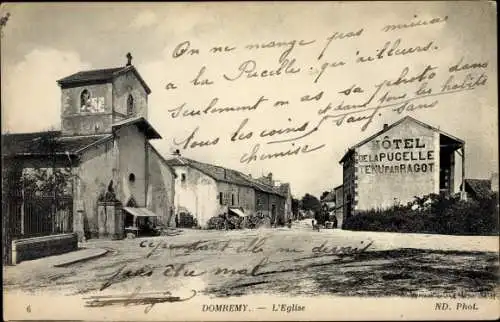 On ne mange pas mieux
a la Pucelle qu'ailleurs.
Seulement on a sa photo dans
tous les coins et dans tous les habits
sauf sans
chemise
HÔTEL
DE LA PUCELLE
TENU PAR RAGOT
cependant
pas mal
6 DOMREMY. — L'Eglise ND. Phot.